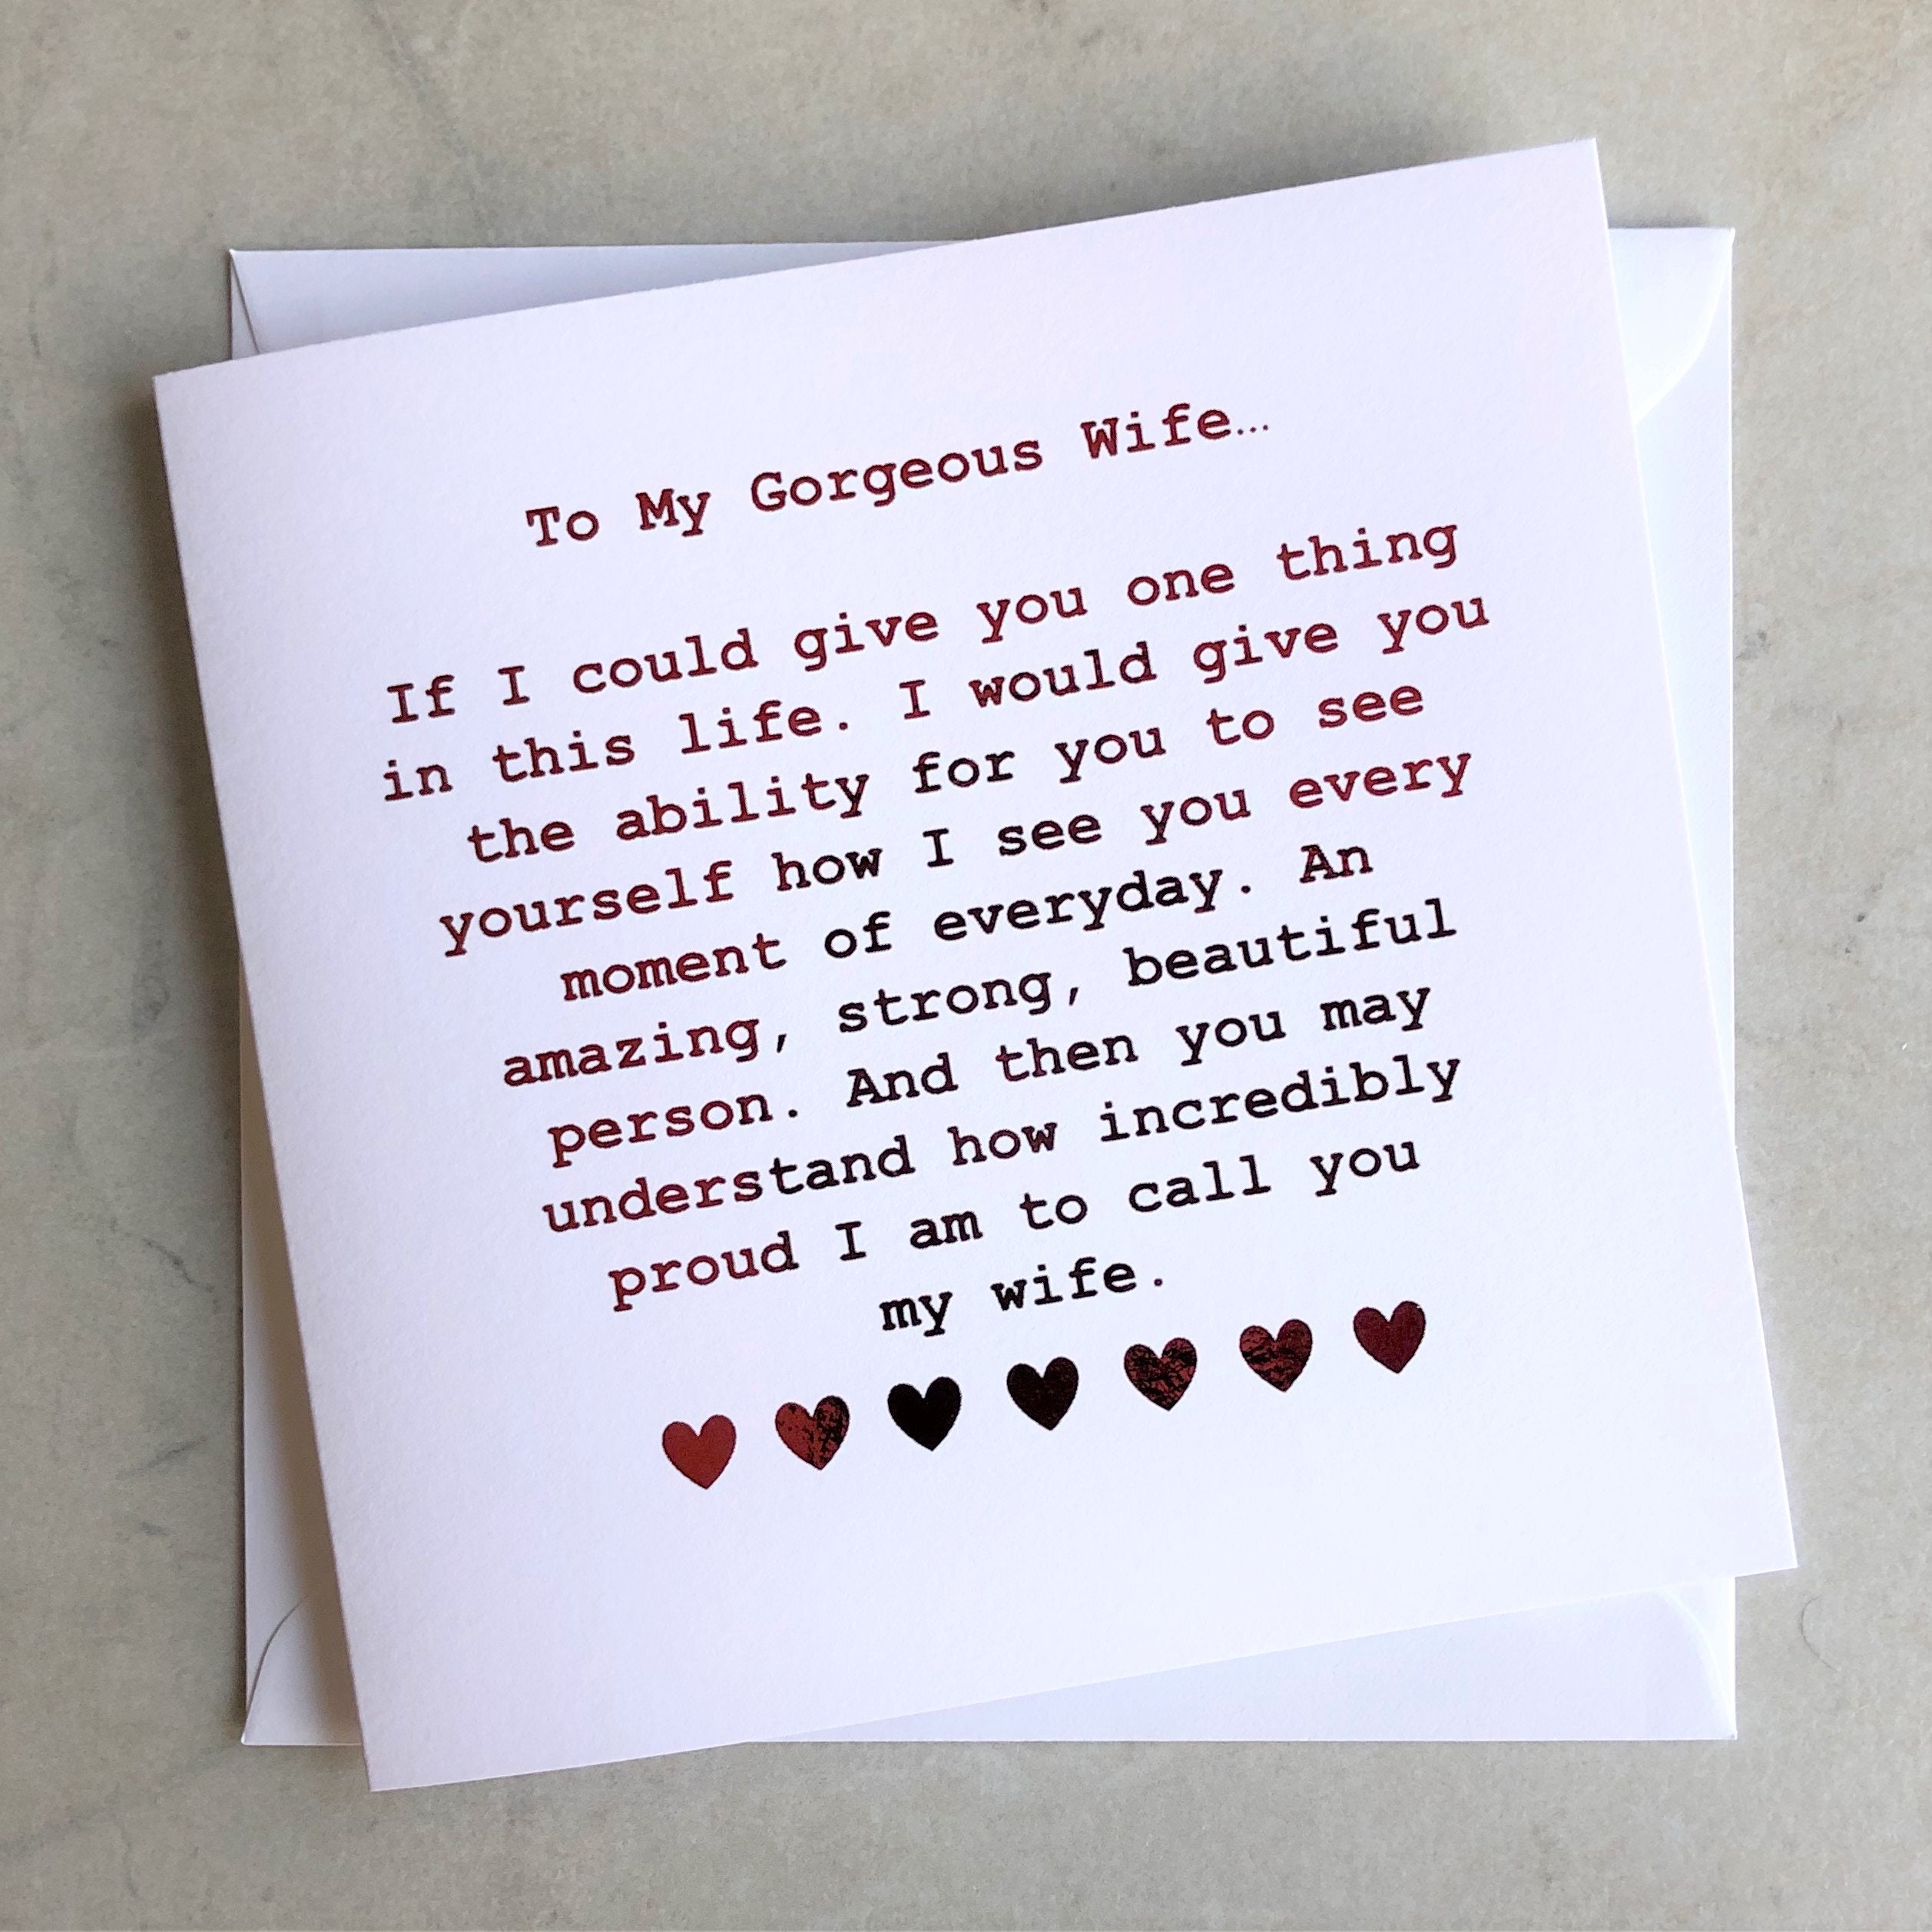 To My Gorgeous Wife…
If I could give you one thing
in this life. I would give you
the ability for you to see
yourself how I see you every
moment of everyday. An
amazing, strong, beautiful
person. And then you may
understand how incredibly
proud I am to call you
my wife.